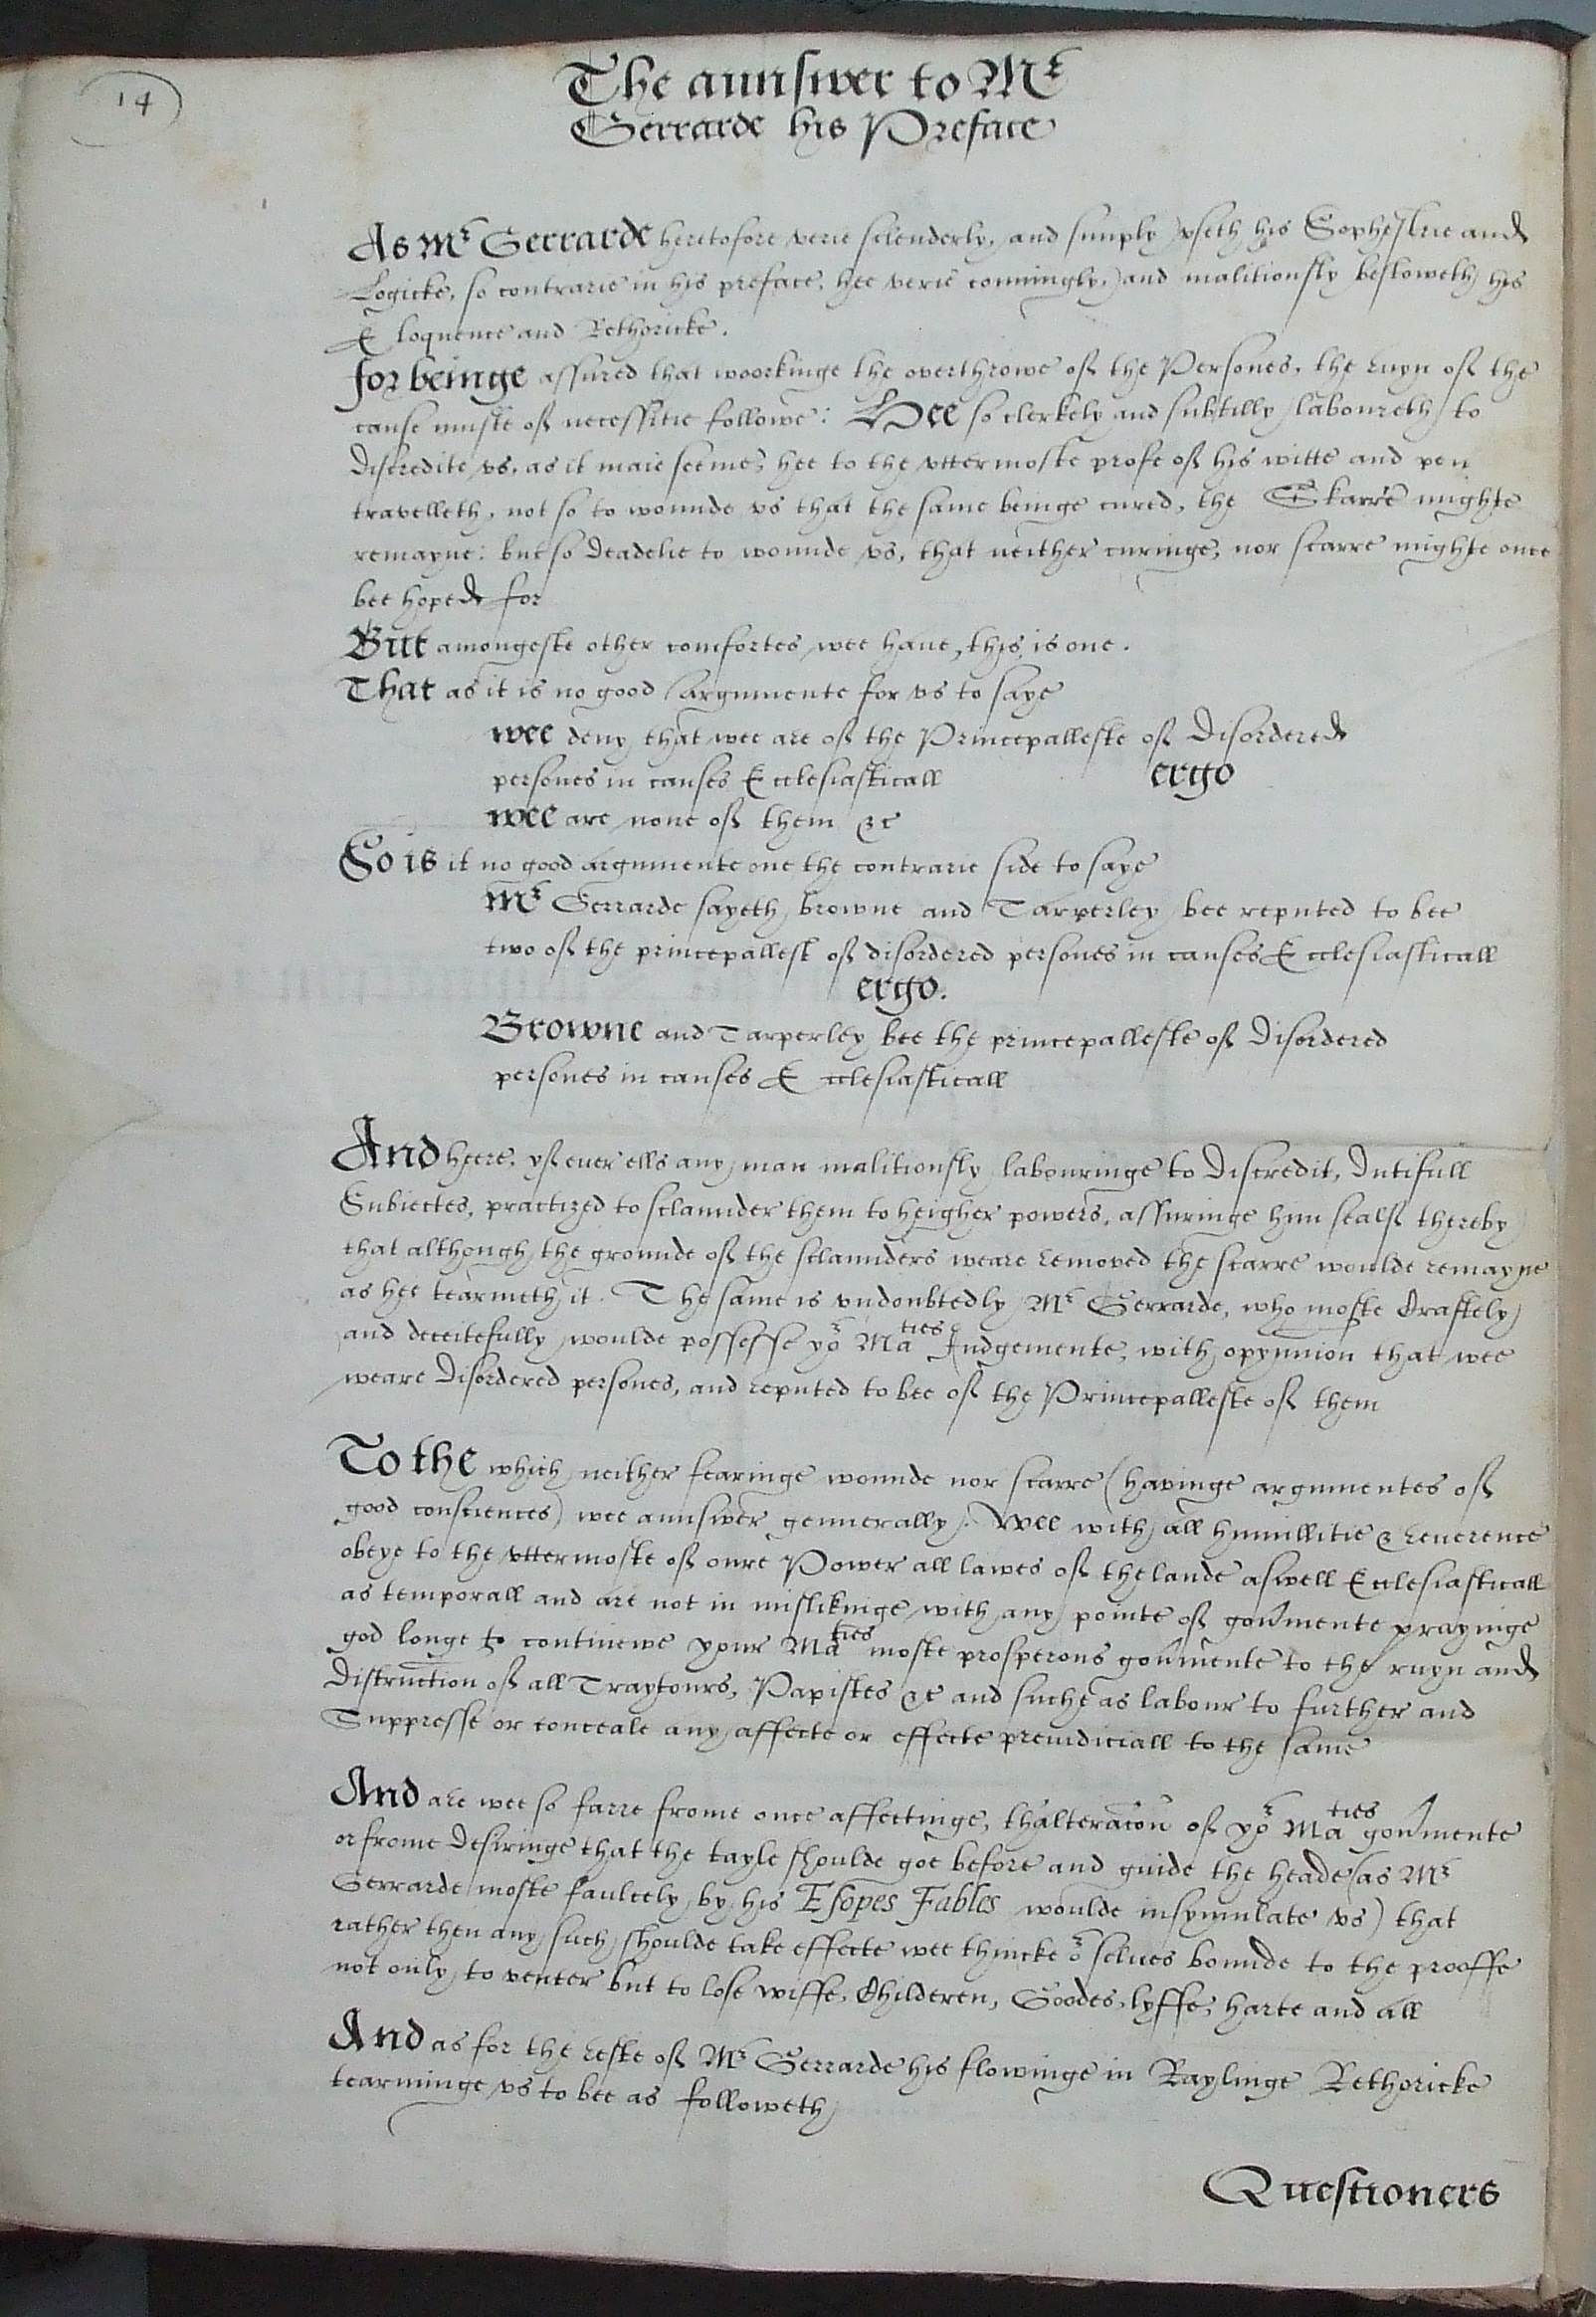 14
The aunswer to Mr
Gerrarde his Preface
As Mr Gerrarde heretofore verie sclenderly, and simply vseth his Sophestrie and
Logicke, so contrarie in his preface, hee verie conningly, and malitiously bestoweth his
Eloquence and Rethoricke.
for beinge assured that woorkinge the overthrowe of the Persones, the ruyn of the
cause muste of necessitie followe: Hee so clerkely and subtilly laboureth to
discredite vs, as it maie seeme, hee to the vttermoste profe of his witte and pen
travelleth, not so to wounde vs that the same beinge cured, the Skarre mighte
remayne: but so deadelie to wounde vs, that neither curinge, nor scarre mighte once
bee hoped for
But amongeste other comfortes wee haue, this is one.
That as it is no good argumente for vs to saye
wee deny that wee are of the Princepalleste of disordered
persones in causes Ecclesiasticall ergo
wee are none of them &c
So is it no good argumente one the contrarie side to saye
Mr Gerrarde sayeth browne and Tarperley bee reputed to bee
two of the princepallest of disordered persones in causes Ecclesiasticall
ergo.
Browne and Tarperley bee the princepalleste of disordered
persones in causes Ecclesiasticall
And heere, yf euer ells any man malitiously labouringe to discredit, dutifull
Subiectes, practized to sclaunder them to heigher powers, assuringe him sealf thereby
that although the grounde of the sclaunders weare removed the scarre woulde remayne
as hee tearmeth it. The same is vndoubtedly Mr Gerrarde, who moste Craftely
and deceitefully woulde possesse yor Maties Iudgemente, with opynnion that wee
weare disordered persones, and reputed to bee of the Princepalleste of them
To the which neither fearinge wounde nor scarre (havinge argumentes of
good consciences) wee aunswer gennerally. Wee with all humillitie & reuerence
obeye to the vttermoste of oure Power all lawes of the lande aswell Ecclesiasticall
as temporall and are not in mislikinge with any pointe of gou̔mente prayinge
god longe to continewe your Maties moste prosperous gou̔mente to the ruyn and
distruction of all Traytours, Papistes &c and suche as labour to further and
Suppresse or conceale any affecte or effecte preiudiciall to the same
And are wee so farre frome once affectinge, thalteracōn of yor Maties gou̔mente
or frome desiringe that the tayle shoulde goe before and guide the heade (as Mr
Gerrarde moste faulcely by his Esopes Fables woulde insymulate vs) that
rather then any such shoulde take effecte wee thincke or selues bounde to the prooffe
not only to venter but to lose wiffe, Childeren, Goodes, lyffe, harte and all
And as for the reste of Mr Gerrarde his flowinge in Raylinge Rethoricke
tearminge vs to bee as followeth
Questioners